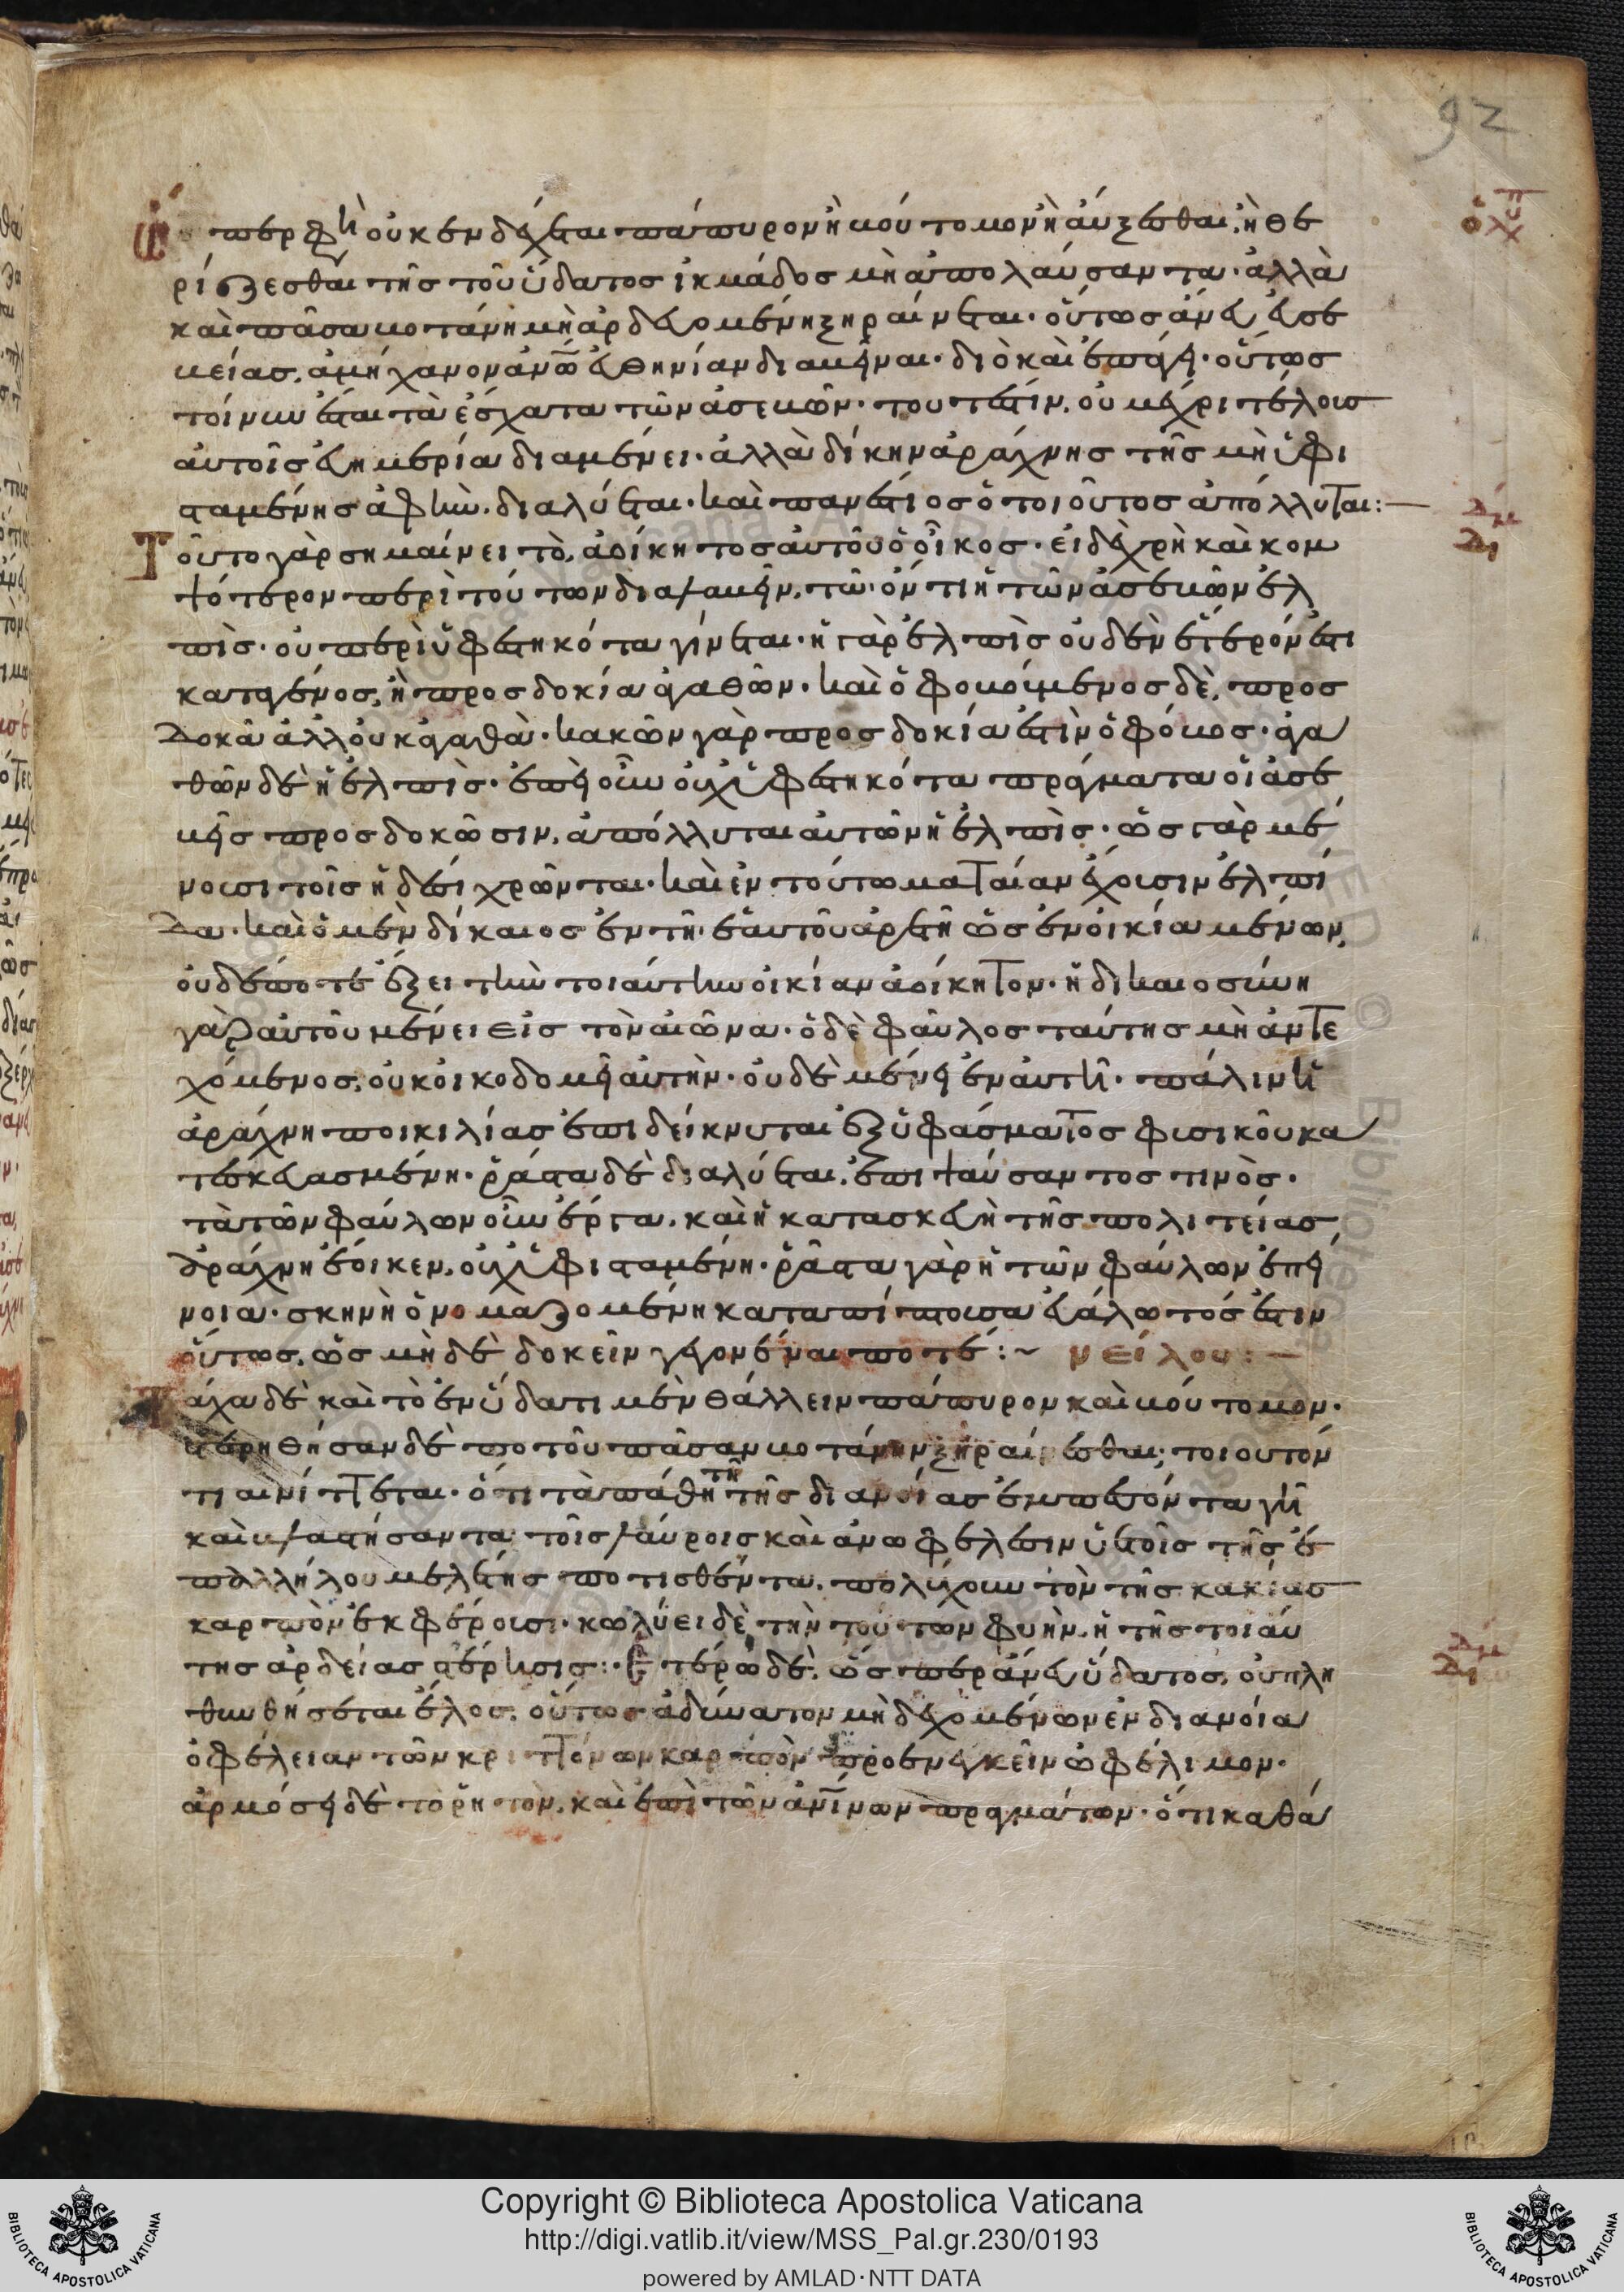 92
ὥσπερ φησὶν οὐκ ἐνδέχεται πάπυρον ἢ βούτομον ἢ αὔξεσθαι, ἢ θε
ρίζεσθαι τῆς τοῦ ὕδατος ἰκμάδος μὴ ἀπολαύσαντα· ἀλλὰ
καὶ πᾶσα βοτάνη μὴ ἀρδευομένη ξηραίνεται· οὕτως ἄνευ εὐσε
βείας, ἀμήχανον ἐν εὐθηνίαν διαβῆναι· διὸ καὶ ἐπάγει· οὕτως
τοίνυν ἔσται τὰ ἔσχατα τῶν ἀσεβῶν· τουτέστιν, οὐ μέχρι τέλους
αὐτοῖς εὐημερία διαμένει· ἀλλὰ δίκην ἀράχνης τῆς μὴ ὑφι
σταμένης ἁφὴν, διαλύεται· καὶ παναίτιος ὁ τοιοῦτος ἀπόλλυται:
Τοῦτο γὰρ σημαίνει τὸ, ἀοίκητος αὐτοῦ ὁ οἶκος· εἰ δὲ χρὴ καὶ κομ
ψότερον περὶ τούτων διαλαβεῖν, τῷ ὄντι ἡ τῶν ἀσεβῶν ἐλ
πὶς· οὐ περὶ ὑφεστηκότα γίνεται· ἡ γὰρ ἐλπὶς οὐδὲν ἕτερόν ἐστι
κατὰ γένος, ἢ προσδοκία ἀγαθῶν· καὶ ὁ φοβούμενος δὲ, προσ
δοκᾶ ἀλλ' οὐκ ἀγαθὰ· κακῶν γὰρ προσδοκία ἐστὶν ὁ φόβος· ἀγα
θῶν δὲ ἡ ἐλπὶς· ἐπεὶ οὖν οὐχ ὑφεστηκότα πράγματα οἱ ἀσε
βεῖς προσδοκῶσιν, ἀπόλλυται αὐτῶν ἡ ἐλπὶς· ὡς γὰρ μέ
νουσι τοῖς ἡδέσι χρῶνται· καὶ ἐν τούτω ματαίαν ἔχουσιν ἐλπί
δα· καὶ ὁ μὲν δίκαιος ἐν τῆ ἑαυτοῦ ἀρετῆ ὡς ἐν οἰκία μένων,
οὐδέποτε ἕξει τὴν τοιαύτην οἰκίαν ἀοίκητον· ἡ δικαιοσύνη
γὰρ αὐτοῦ μένει εἰς τὸν αἰῶνα· ὁ δὲ φαῦλος ταύτης μὴ ἀντε
χόμενος, οὐκ οἰκοδομεῖ αὐτὴν· οὐδὲ μένει ἐν αὐτῆ· πάλιν ἡ
ἀράχνη ποικιλίας ἐπιδείκνυται ἐξ ὑφάσματος φυσικοῦ κα
τεσκευασμένη· ῥᾶστα δὲ διαλύεται, ἐπιψαύσαντος τινὸς·
τὰ τῶν φαύλων οὖν ἔργα, καὶ ἡ κατασκευὴ τῆς πολιτείας,
ἀράχνη ἔοικεν, οὐχ ὑφισταμένη· ῥᾶστα γὰρ ἡ τῶν φαύλων ἐπί
νοια· σκηνὴ ὀνομαζομένη καταπίπτουσα εὐάλωτός ἐστιν
οὕτως, ὡς μὴ δὲ δοκεῖν γεγονέναι ποτέ:~ νείλου:—
Τάχα δὲ καὶ τὸ ἐν ὕδατι μὲν θάλλειν πάπυρον καὶ βούτομον·
στερηθήσαν δὲ ποτοῦ πᾶσαν βοτάνην ξηραίνεσθαι; τοιουτόν
τι αἰνίττεται· ὅτι τὰ πάθη τῆ τῆς διανοίας ἐμπεσόντα γῆ
καὶ βλαστήσαντα τοῖς λαύροις καὶ ἀνωφελέσιν ὑετοῖς τῆς ἐ
παλλήλου μελέτης ποτισθέντα, πολύχουν τὸν τῆς κακίας
καρπὸν ἐκφέρουσι· κωλύει δὲ τὴν τούτων φυὴν, ἡ τῆς τοιαύ
της ἀρδείας στέρησις:· Ἑτέρω δὲ, ὥσπερ ἄνευ ὕδατος, οὐ πλη
θυνθήσεται ἕλος, οὕτως ἀδύνατον μὴ δεχομένων ἐν διανοία
ὀφέλειαν τῶν κριττόνων καρπὸν προενεγκεῖν ὠφέλιμον·
ἁρμόσει δὲ τὸ ῥητὸν, καὶ ἐπὶ τῶν ἀνίνων πραγμάτων· ὅτι καθά
Copyright © Biblioteca Apostolica Vaticana
http://digi.vatlib.it/view/MSS_Pal.gr.230/0193
powered by AMLAD·NTT DATA
BIBLIOTECA APOSTOLICA VATICANA
BIBLIOTECA APOSTOLICA VATICANA